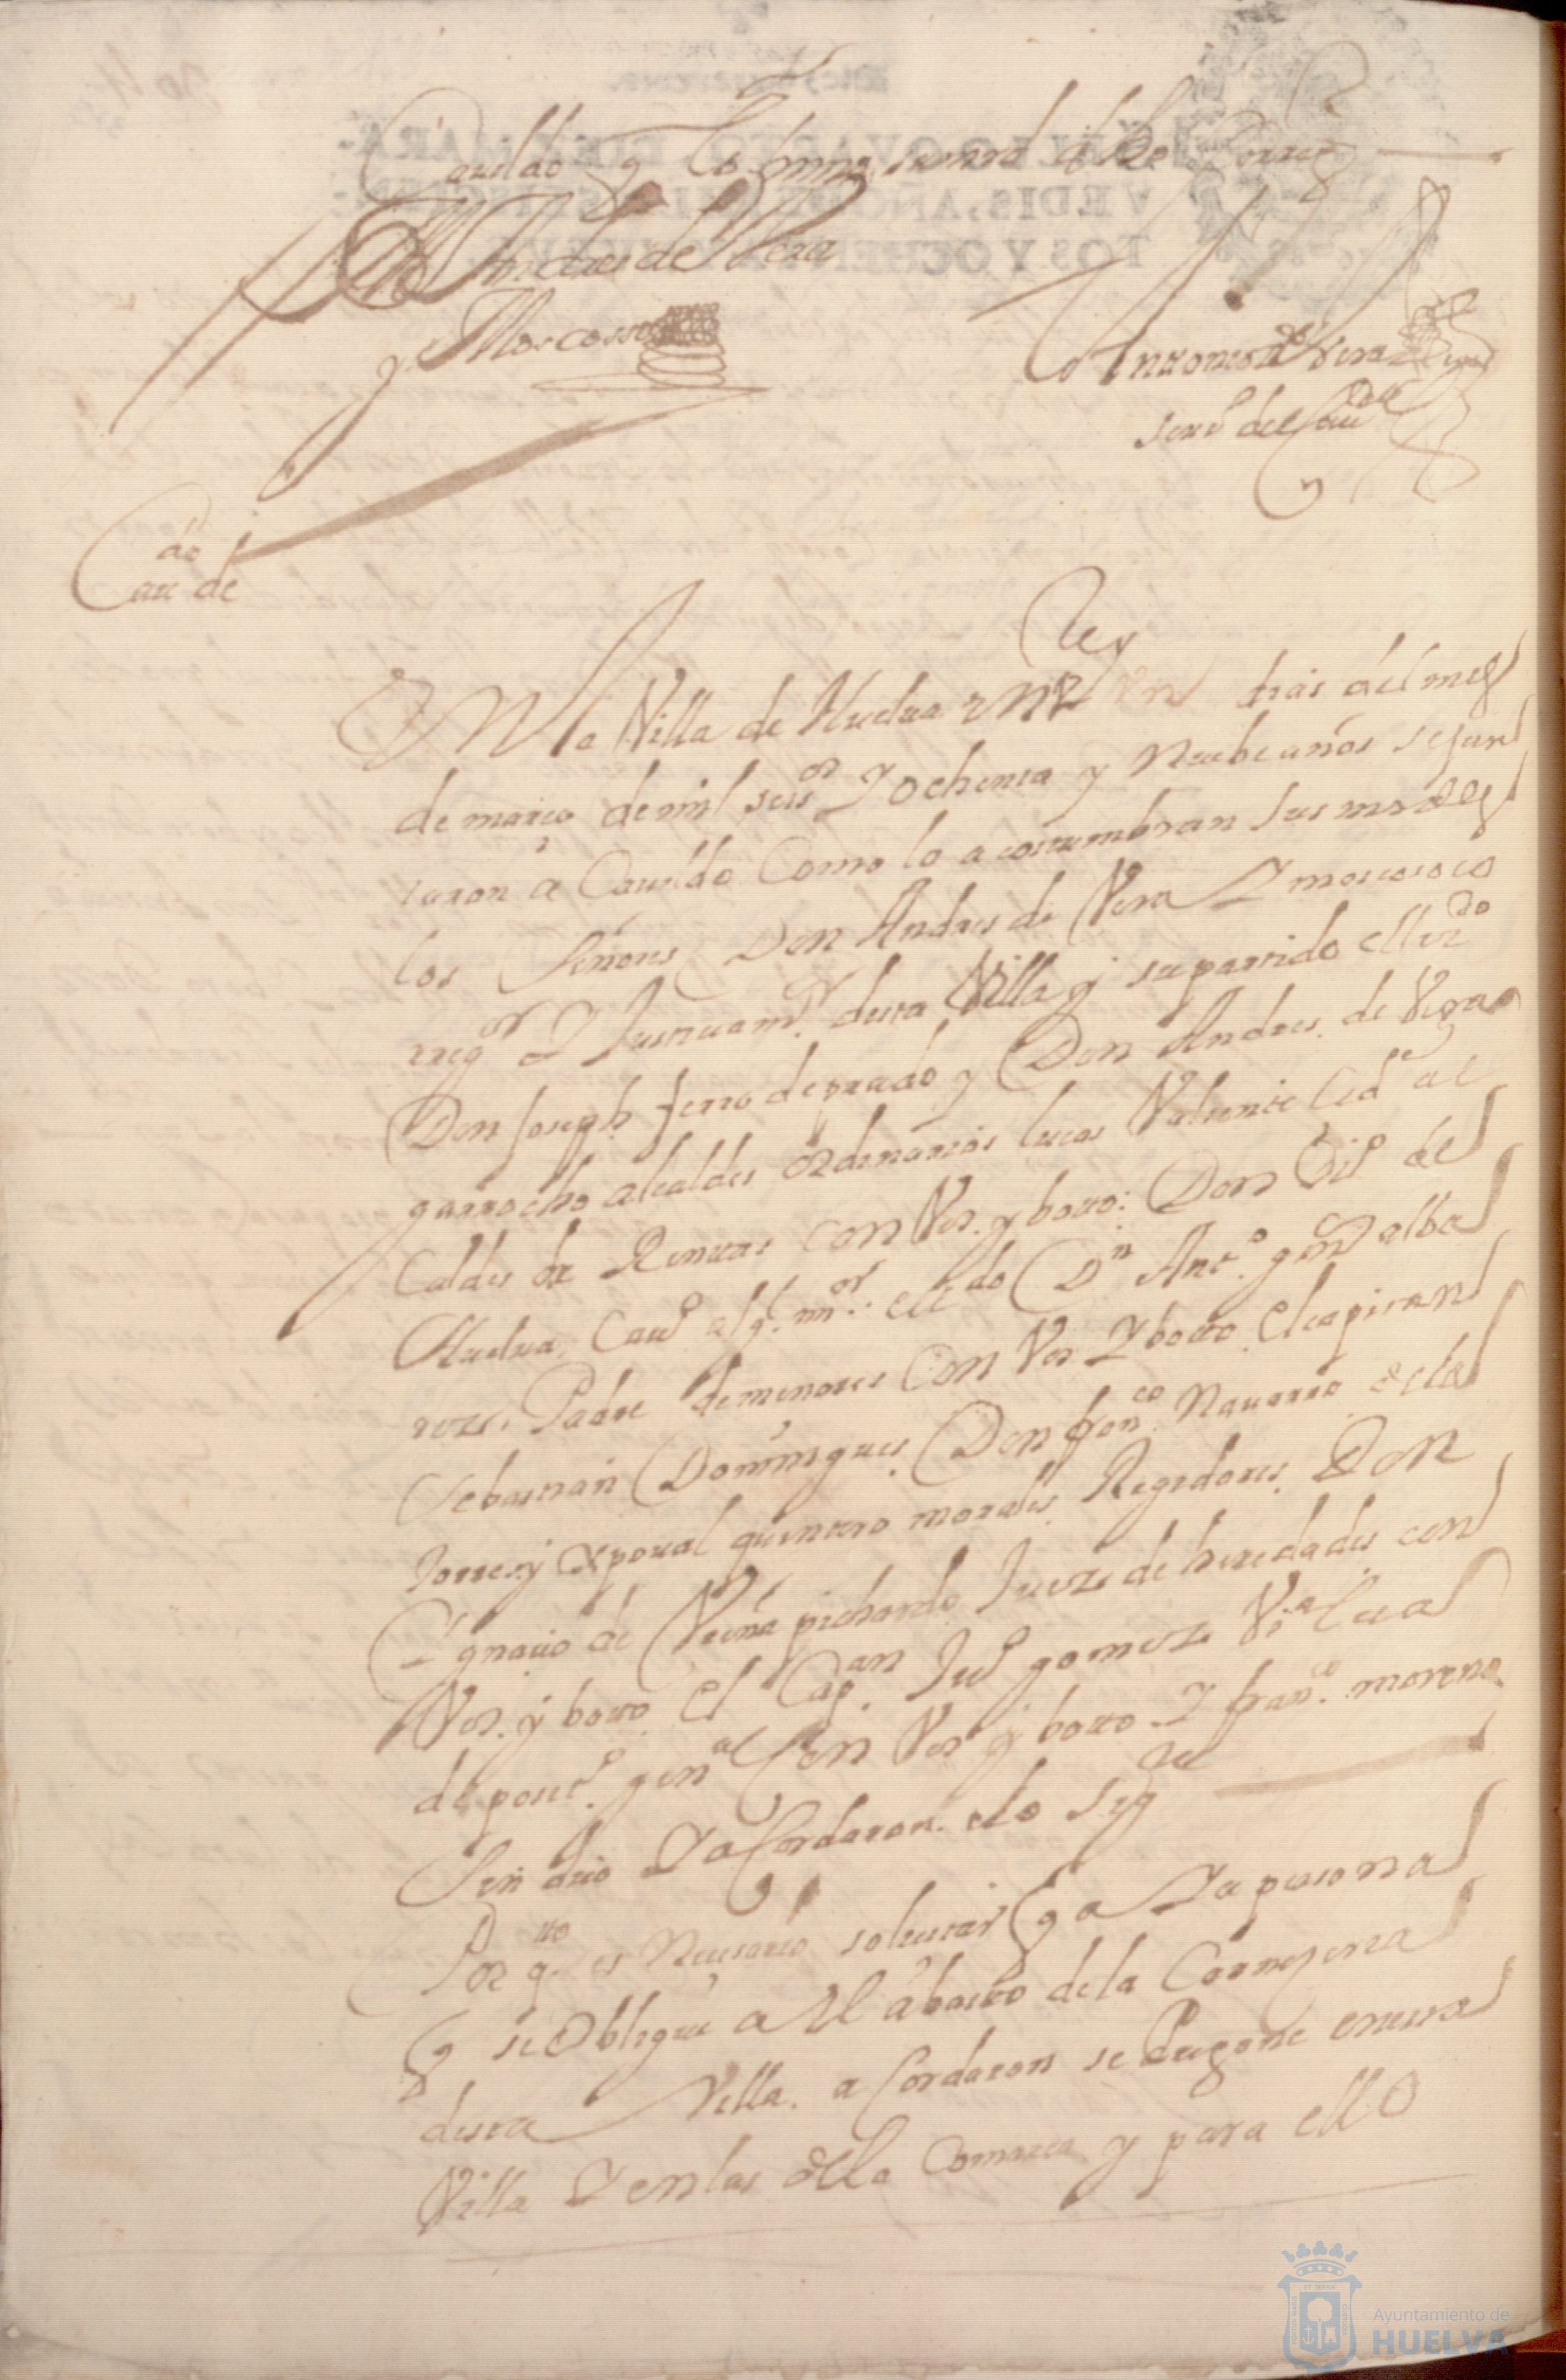 Cauildo y lo firmo su mrd
Andres de Vera
y Moscosso
Antonio de Vera
scriuo del Caudo
Caudo de
Rey
En la Villa de Huelua en tras del mes
de março de mil seisos y ochenta y Nuebe años se jun
taron a Cauildo Como lo acostumbran sus mrdes
los Señores Don Andres de Vera y moscoso co
rregor y Justicia mr desta Villa y su partido el lizdo
Don Joseph fierro de prado y Don Andres de Vega
garrocho alcaldes ordinarios lucas Valiente Cede al
Caldes de Rentas con Vos y botto Don Dio de
Huelua Cauo alg mor el lido Dn Anto gin alba
rez Padre de menores Con Vos y botto el capitan
Sebastian Domingues Don franco Nauarro de la
Torre y Xpoual quintero morales Regidores Don
Ygnacio de Vreña pichardo Juez de heredades con
Vos y botto el Capan Juo gomez Va Lua
deposito genal Con Vos y botto y franco moreno
Sindico y aCordaron lo sigte
Por qto es Necesario solicitar q aya persona
q se obligue a el abasto de la Carneseria
desta Villa aCordaron se Pregone en esta
Villa y en las de la Comarca y para ello
Ayuntamiento de
HUELVA